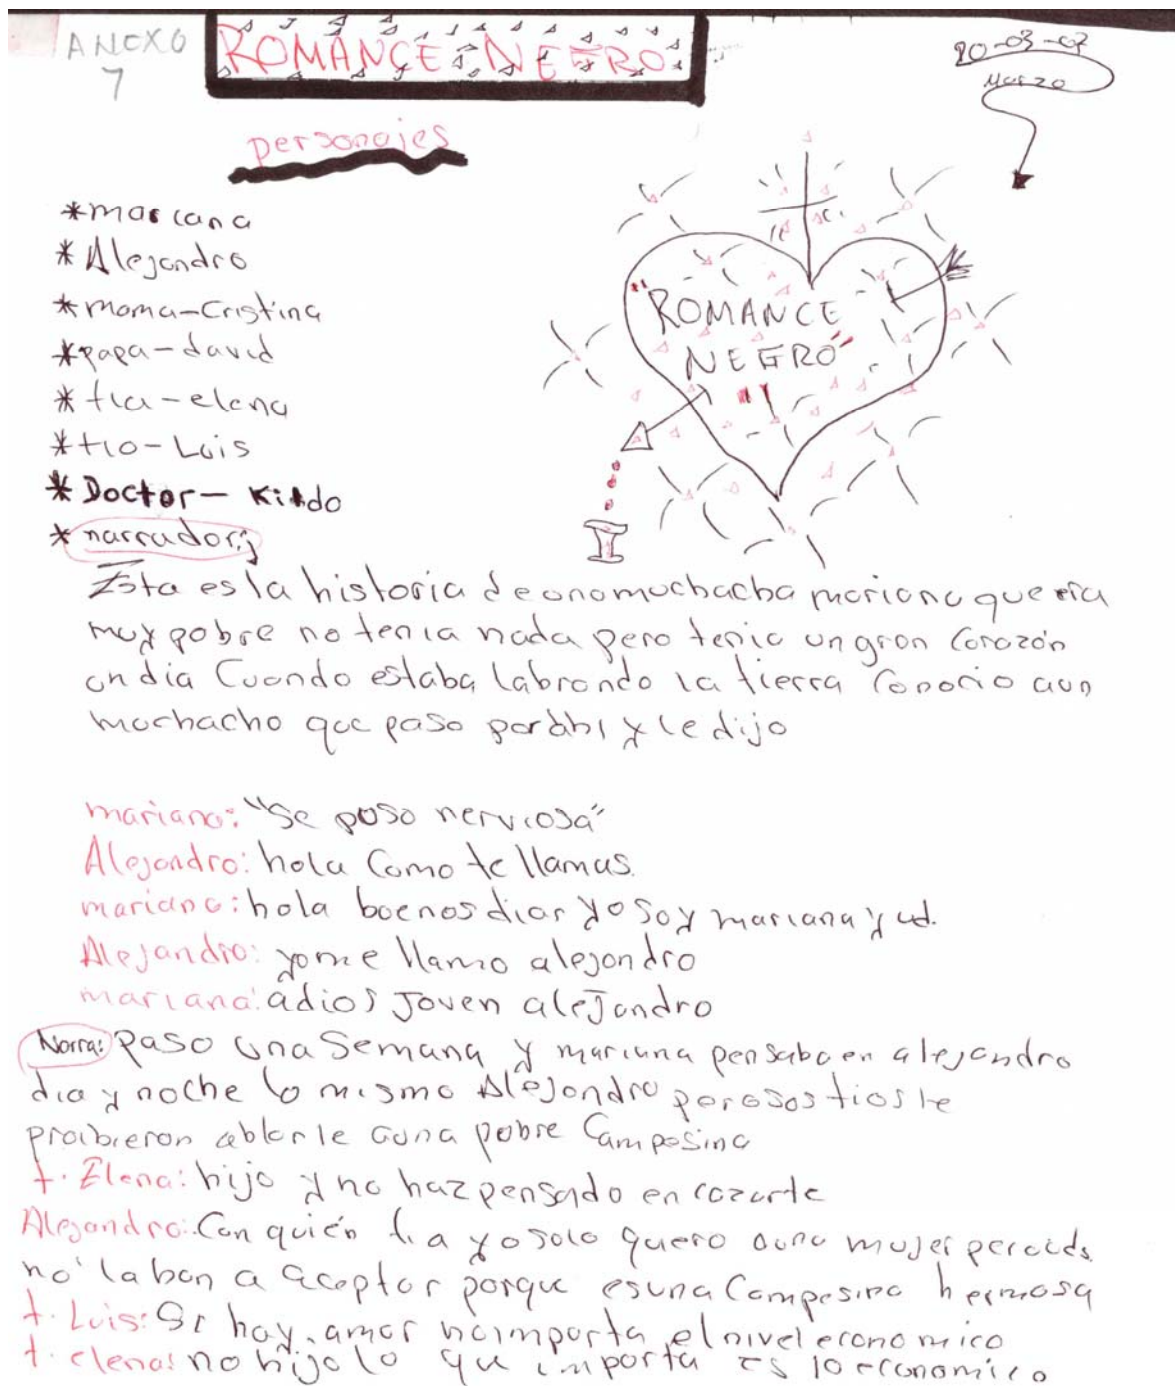 ANEXO
7
ROMANCE NEGRO
20-03-07
Marzo
personajes
*mariana
*Alejandro
*mama-Cristina
*papa-david
*tia-elena
*tio-Luis
*Doctor- Kildo
*narrador:
"ROMANCE
NEGRO"
Esta es la historia de una muchacha mariana que era
muy pobre no tenia nada pero tenia un gran Corazón
un dia Cuando estaba labrando la tierra Conocio aun
muchacho que paso por ahi y le dijo
mariana: "Se puso nerviosa"
Alejandro: hola Como te llamas.
mariana: hola buenos dias yo soy mariana y ud.
Alejandro: yo me llamo alejandro
mariana: adios Joven aleJandro
Narra: Paso una Semana y mariana pensaba en alejandro
dia y noche lo mismo AleJandro pero sus tios le
proibieron ablarle auna pobre Campesina
t. Elena: hijo y no haz pensado en cazarte
Alejandro: Con quién tia yo solo quero auna mujer pero uds.
no la ban a aceptar porque es una Campesina hermosa
t. Luis: Si hay amor no importa el nivel economico
t. elena: no hijo lo que importa es lo economico